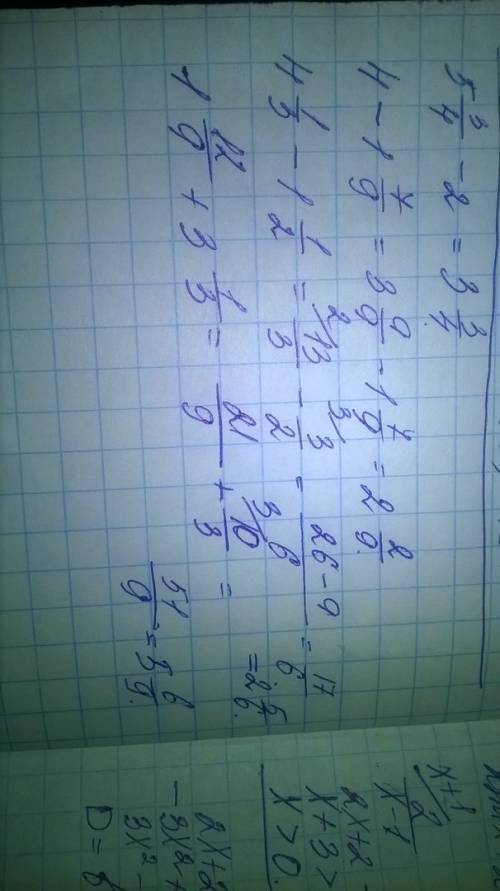 5 3/4 - 2 = 3 3/4.
4 - 1 7/9 = 3 9/9 - 1 7/9 = 2 2/9.
4 1/3 - 1 1/2 = 13/3 - 3/2 = 26-9/6 = 17/6. = 2 5/6.
1 12/9 + 3 1/3 = 21/9 + 10/3 =
51/9 = 5 6/9.
x+1
2
x-1
2x+2
x+3>
x>0.
2x+2
-3x2+
3x2-
D=